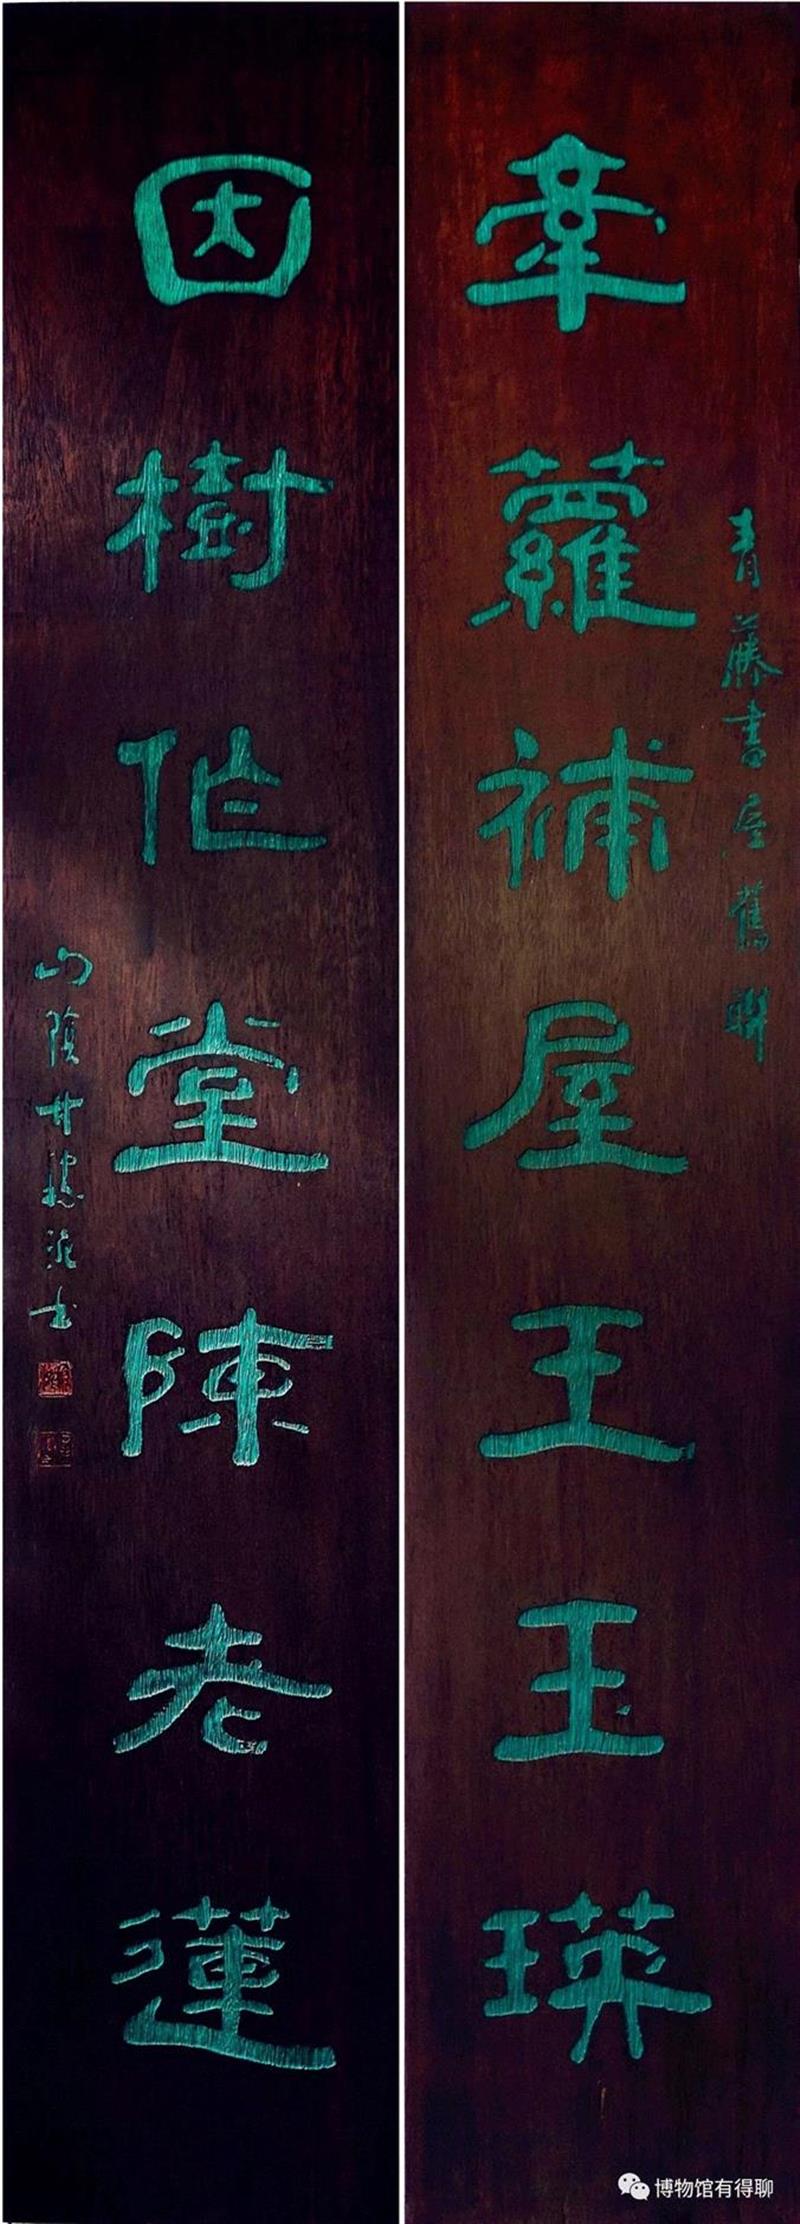 青藤書屋舊聯
牽蘿補屋王玉瑛
因樹作堂陳老蓮
山陰甘稼泥書
博物馆有得聊